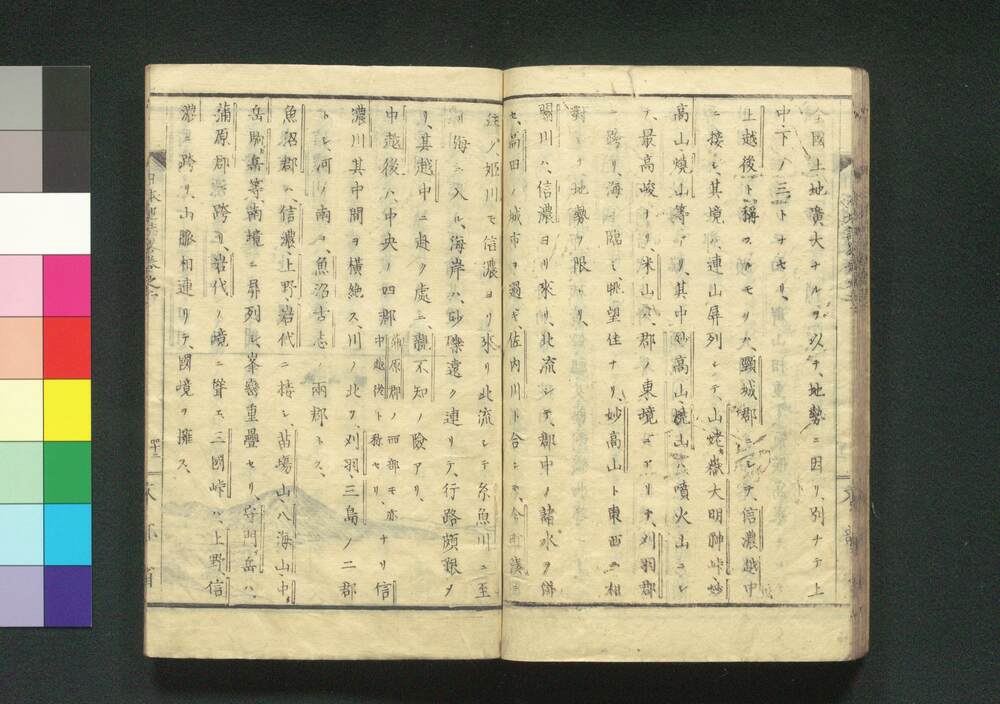 全國土地廣大ナルヲ以テ、地勢ニ因リ、別チテ上
中下ノ三トナセリ、
上越後ト稱スルモノハ、頸城郡ニシテ、信濃越中
ニ接シ、其境ハ、連山屏列シテ、山姥嶽大明神峠妙
高山燒山等アリ、其中妙高山燒山ハ噴火山ニシ
テ、最高峻ナリ、米山ハ、郡ノ東境ニアリテ、刈羽郡
ニ跨リ、海ニ臨ミ、眺望佳ナリ、妙高山ト東西ニ相
對シテ地勢ヲ限レリ、
關川ハ、信濃ヨリ來リ、北流シテ、郡中ノ諸水ヲ併
セ、高田ノ城市ヲ過ギ、佐内川ト合シテ、今町湊ニ
注グ、姫川モ信濃ヨリ來リ北流シテ糸魚川ニ至
リ海ニ入ル、海岸ハ、砂礫遠ク連リテ、行路頗艱メ
リ、其越中ニ赴ク處ニ、親不知ノ險アリ、
中越後ハ、中央ノ四郡蒲原郡ノ西部モ亦中越後ト稱セリ、ナリ信
濃川其中間ヲ横絶ス、川ノ北ヲ、刈羽、三島ノ二郡
トシ、河ノ南ヲ、魚沼古志ノ兩郡トス、
魚沼郡ハ、信濃、上野、岩代ニ接シ、苗塲山、八海山、中
岳、駒岳等、南境ニ屏列シ、峯巒重疊セリ、守門岳ハ、
蒲原郡ニ跨リ、岩代ノ境ニ聳エ、三國峠ハ、上野信
濃ニ跨リ、山脈相連リテ、國境ヲ擁ス、
四十三